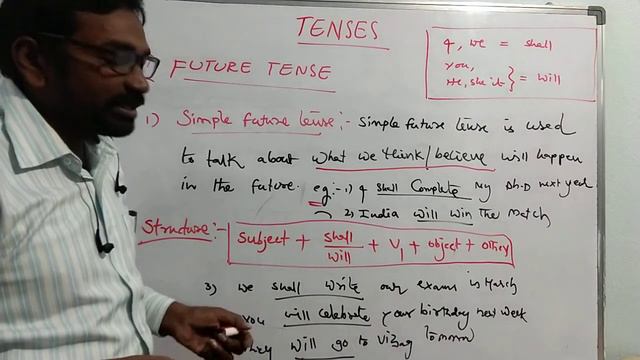 TENSES
FUTURE TENSE
I, we = shall
you,
He, she it } = will
1) Simple future tense :- Simple future tense is used
to talk about what we think/believe will happen
in the future. eg:- 1) I shall complete my Ph.D next year
2) India will win the match
Structure :- Subject + shall/will + V1 + object + other
3) we shall write our exams in March
you will celebrate your birthday next week
They will go to Vizag tomorrow